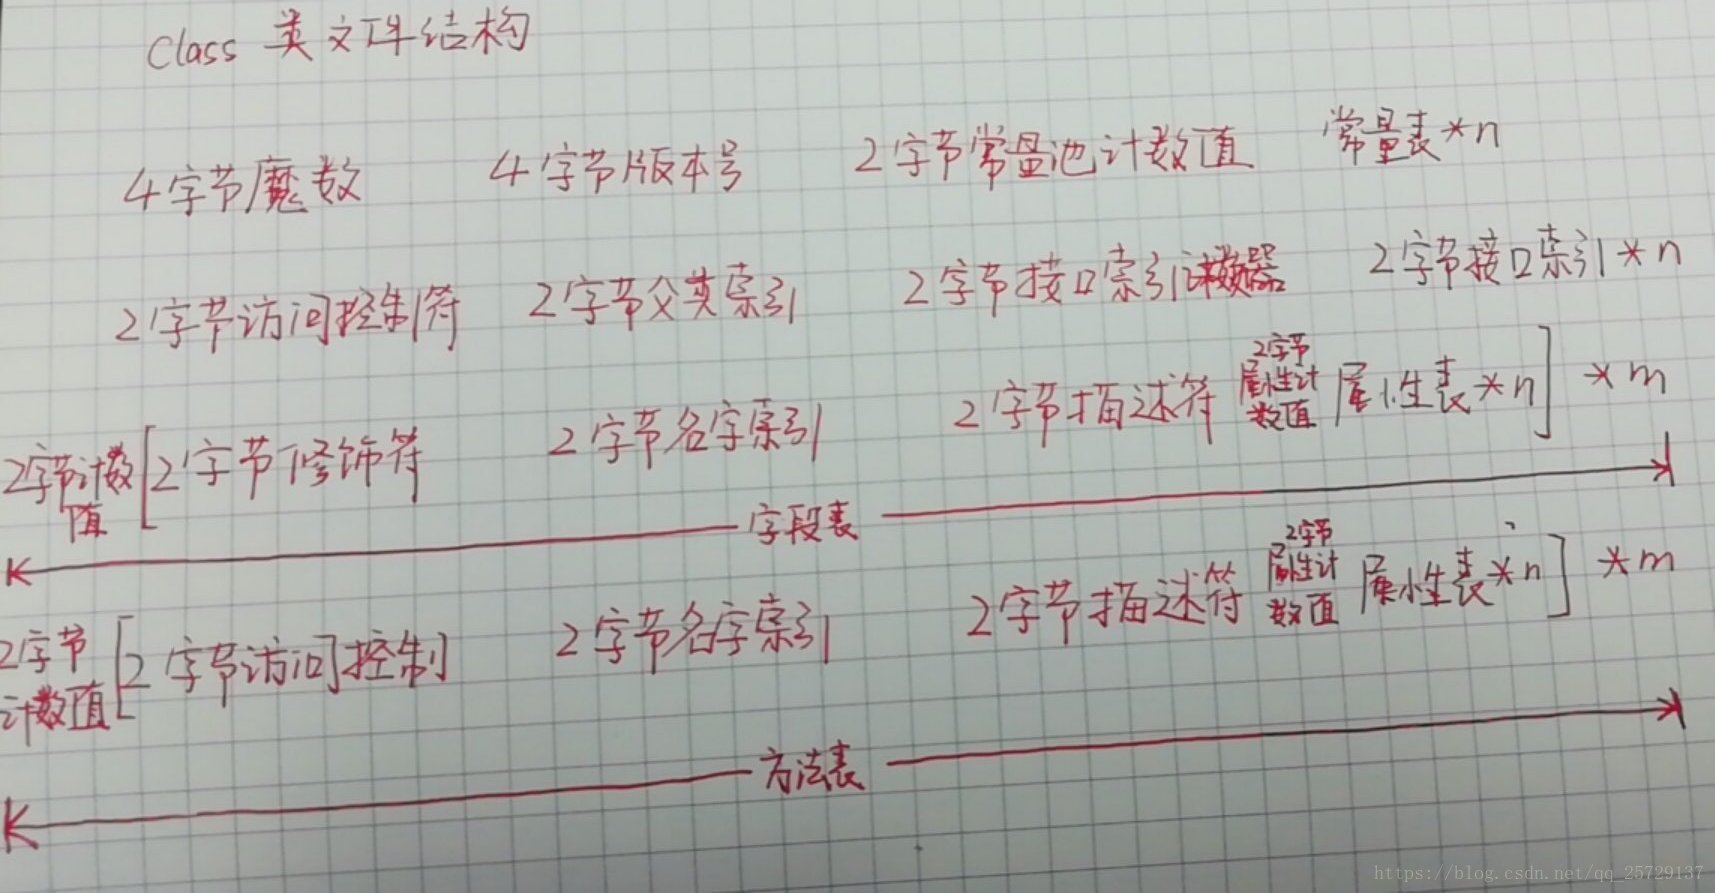 Class 类文件结构
4字节魔数 4字节版本号 2字节常量池计数值 常量表*n
2字节访问控制符 2字节父类索引 2字节接口索引计数器 2字节接口索引*n
2字节计数值 [2字节修饰符 2字节名字索引 2字节描述符 2字节属性计数值 属性表*n] *m
字段表
2字节计数值 [2字节访问控制 2字节名字索引 2字节描述符 2字节属性计数值 属性表*n] *m
方法表
https://blog.csdn.net/qq_25729137